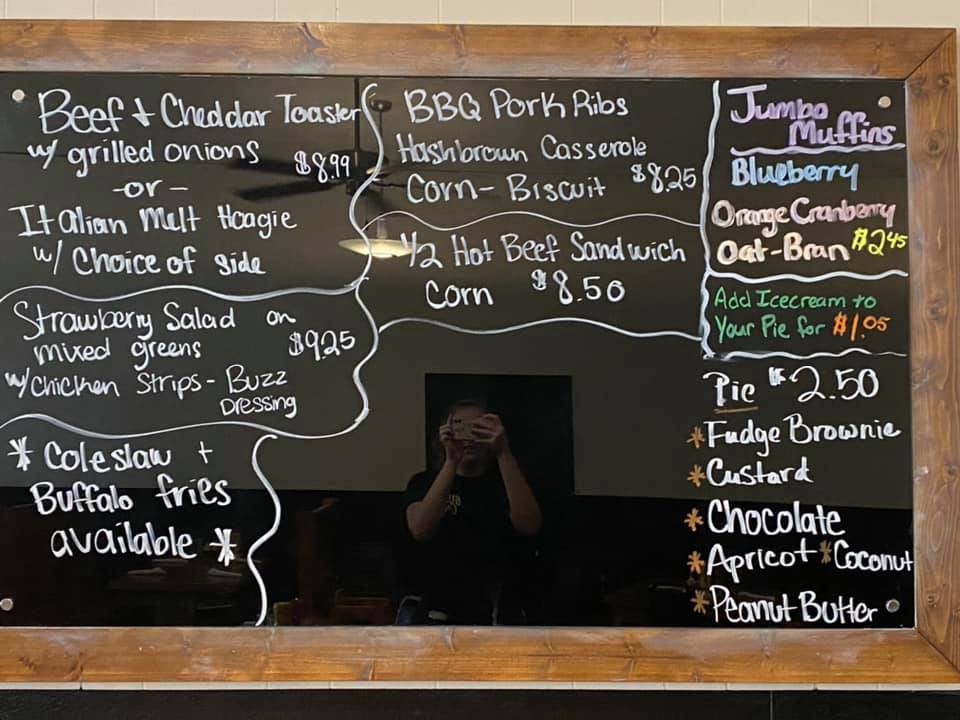 Beef + Cheddar Toaster
w/ grilled onions $8.99
-or-
Italian Melt Hoagie
w/ Choice of side
Strawberry Salad on
mixed greens $9.25
w/chicken strips - Buzz
Dressing
* Coleslaw +
Buffalo fries
available *
BBQ Pork Ribs
Hashbrown Casserole
Corn - Biscuit $8.25
1/2 Hot Beef Sandwich
Corn $8.50
Jumbo
Muffins
Blueberry
Orange Cranberry
Oat-Bran $2.45
Add Icecream to
Your Pie for $1.05
Pie $2.50
*Fudge Brownie
*Custard
*Chocolate
*Apricot *Coconut
*Peanut Butter